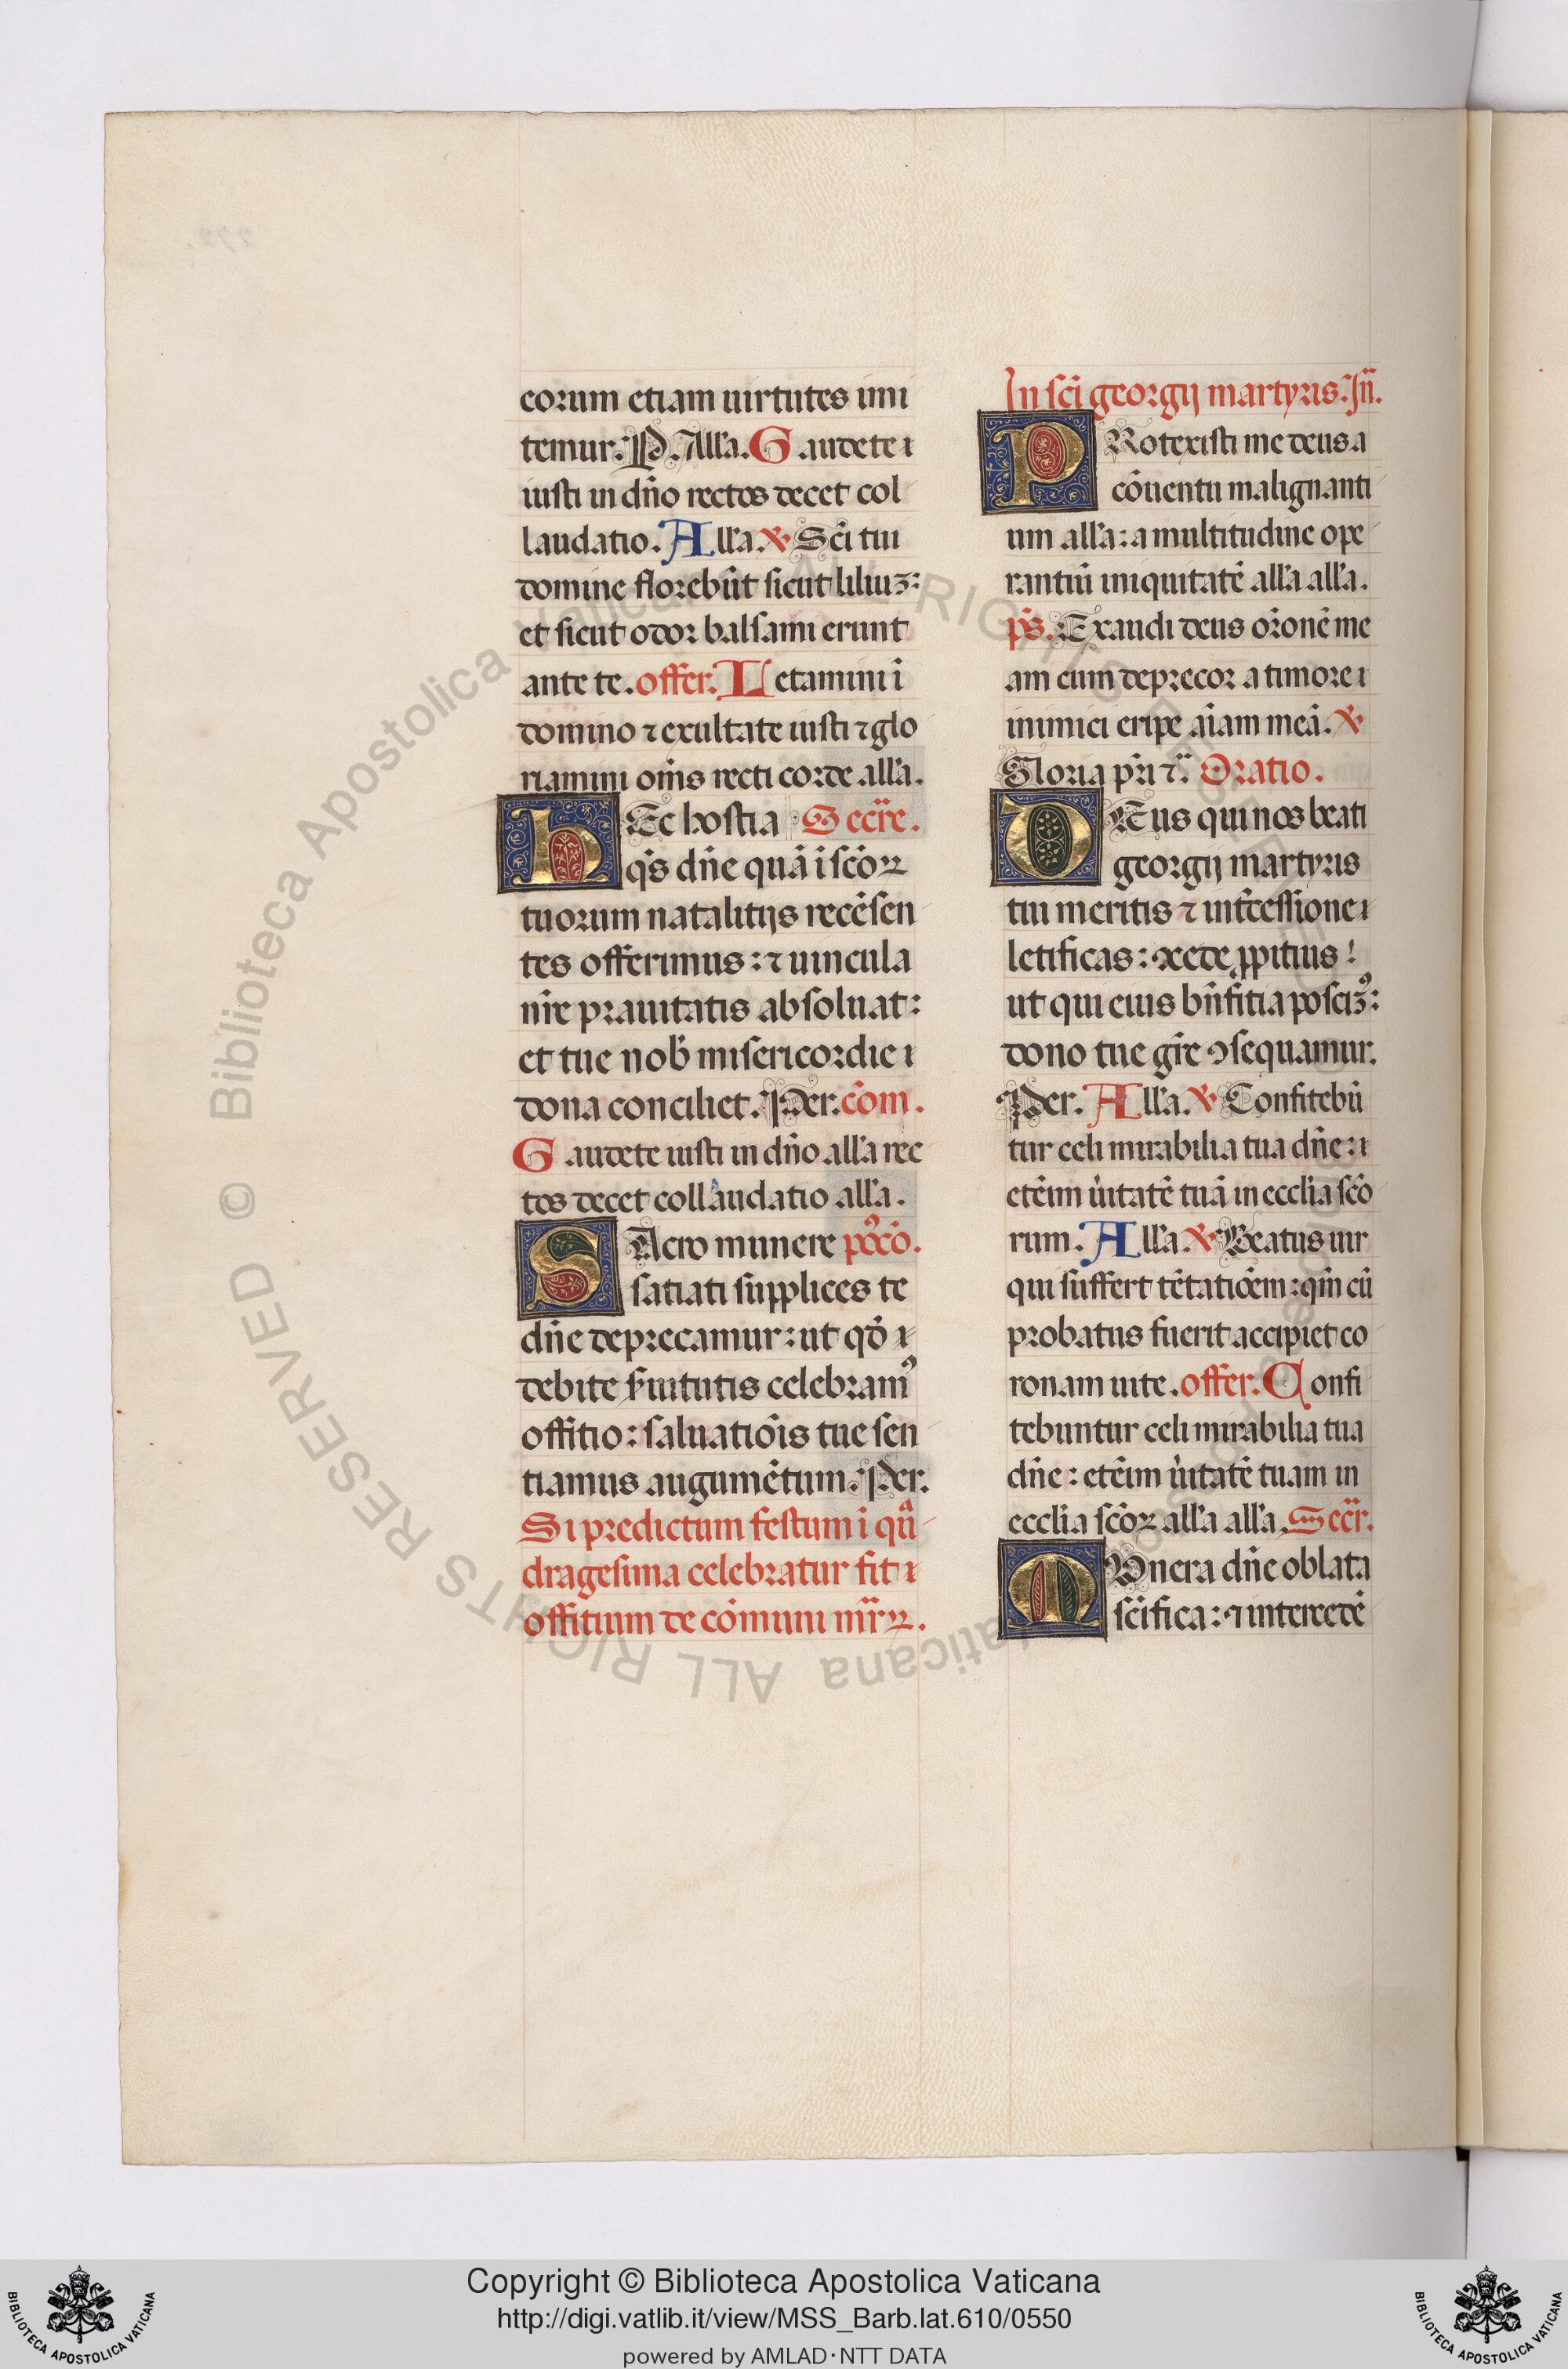 eorum etiam uirtutes imi
temur. P. Alľa. Gaudete
iusti in dño rectos decet col
laudatio. Alľa. ℣ Scĩ tui
domine florebũt sicut liliuʒ:
et sicut odoꝛ balsami erunt
ante te. offer. Letamini ĩ
domino ⁊ exultate iusti ⁊ glo
riamini om̃s recti corde alľa.
HEc hostia Secr̃e.
q̃s dñe quã ĩ scõꝝ
tuorum natalitijs recẽsen
tes offerimus: ⁊ uincula
nr̃e prauitatis absoluat:
et tue nob̃ misericordie
dona conciliet. Per. cõm.
Gaudete iusti in dño alľa rec
tos decet collaudatio alľa.
SAcro munere pꝰcõ.
satiati supplices te
dñe deprecamur: ut qď
debite ẜuitutis celebramꝰ
offitio: saluatiõis tue sen
tiamus augumẽtum. Per.
Si predictum festum ĩ qua
dragesima celebratur fit
offitium de cõmuni mr̃ꝝ.
In scĩ georgij martyris. Iñ.
PRotexisti me deus a
cõuentu malignanti
um alľa: a multitudine ope
rantiũ iniquitatẽ alľa alľa.
ps̃. Exaudi deus or̃onẽ me
am cum deprecor a timore
inimici eripe aĩam meã. ℣
Gloria pr̃i ⁊c̃. Oratio.
DEus qui nos beati
georgij martyris
tui meritis ⁊ int̃cessione
letificas: ꝯcede ꝓpitius!
ut qui eius bñfitia poscimꝰ:
dono tue gr̃e ꝯsequamur.
Per. Alľa. ℣ Confitebũ
tur celi mirabilia tua dñe:
etẽim ũitatẽ tuã in ecclia scõ
rum. Alľa. ℣ Beatus uir
qui suffert tẽtatiõem: qm̃ cũ
probatus fuerit accipiet co
ronam uite. offer. Confi
tebuntur celi mirabilia tua
dñe: etẽim ũitatẽ tuam in
ecclia scõꝝ alľa alľa. Secr̃.
MUnera dñe oblata
scĩfica: ⁊ intercedẽ
Copyright © Biblioteca Apostolica Vaticana
http://digi.vatlib.it/view/MSS_Barb.lat.610/0550
powered by AMLAD·NTT DATA
BIBLIOTECA APOSTOLICA VATICANA
BIBLIOTECA APOSTOLICA VATICANA
© Biblioteca Apostolica Vaticana ALL RIGHTS RESERVED